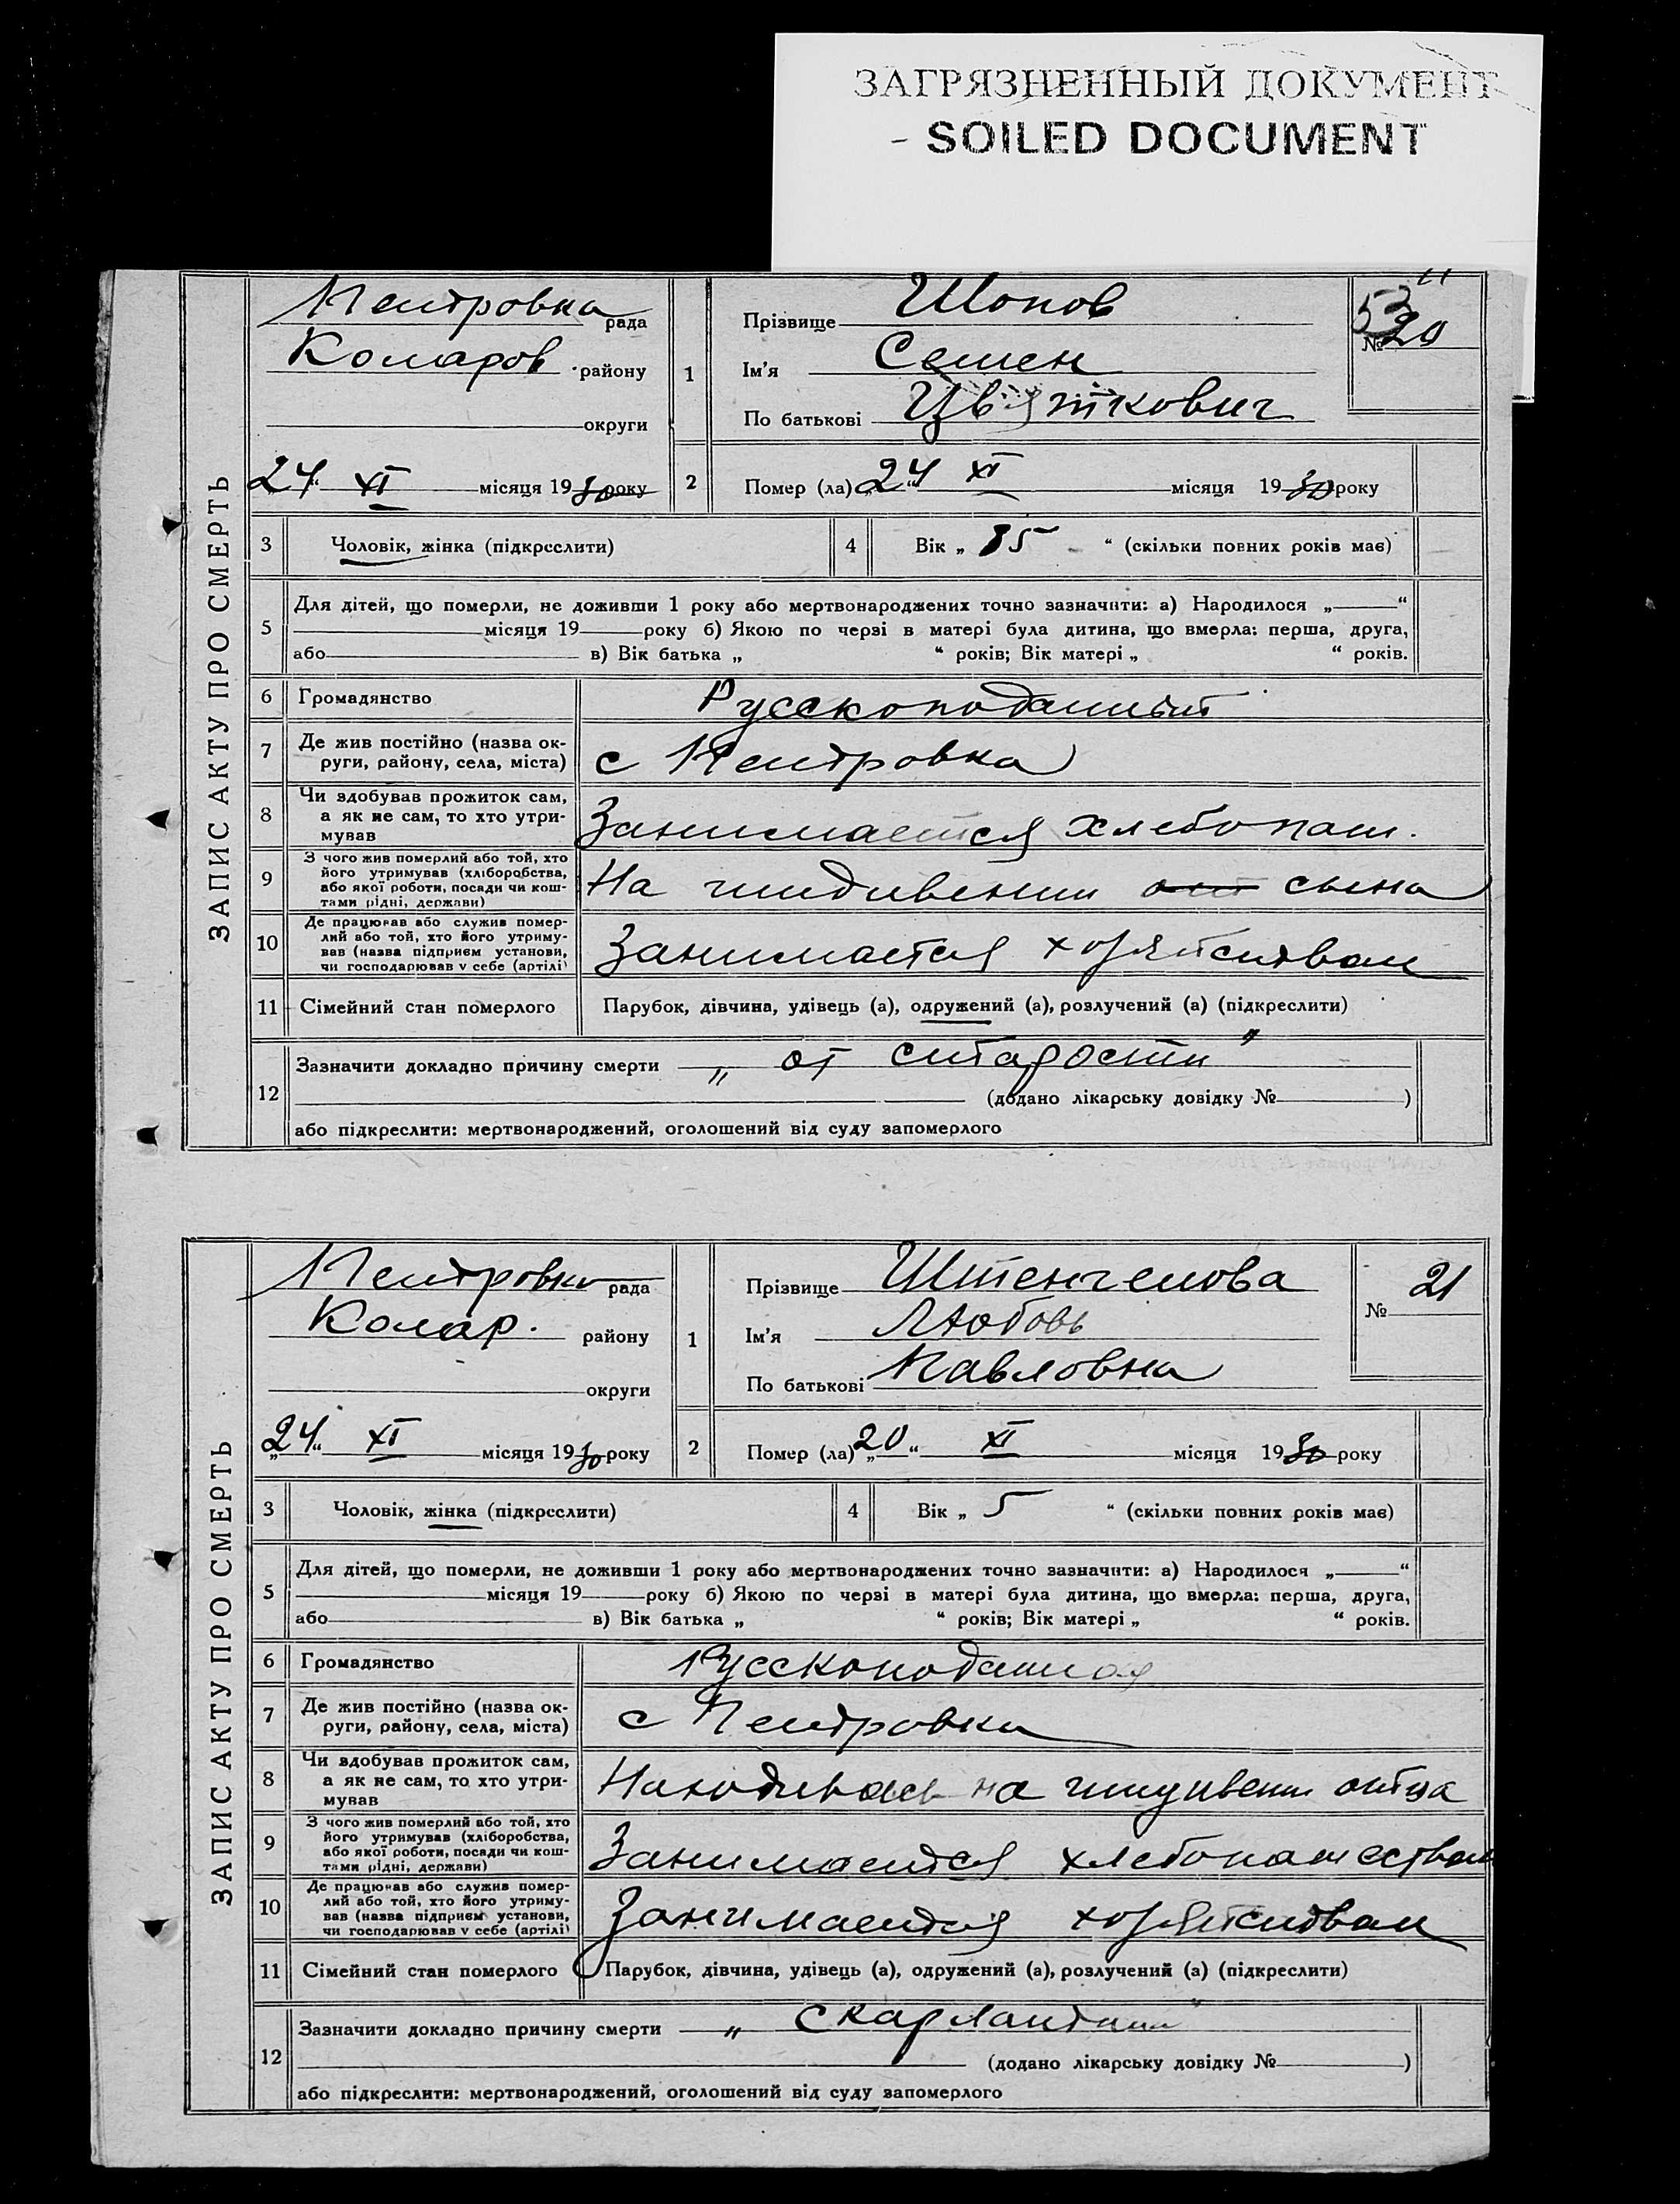 ЗАГРЯЗНЕННЫЙ ДОКУМЕНТ
- SOILED DOCUMENT
ЗАПИС АКТУ ПРО СМЕРТЬ
Петровка рада
Коларов району
округи
24 XI місяця 1930 року
1
Прізвище Шопов
Ім'я Семен
По батькові Цвяткович
53
№ 20
2
Помер (ла) „24“ XI місяця 1930 року
3 Чоловік, жінка (підкреслити)
4 Вік „ 85 “ (скільки повних років має)
5
Для дітей, що померли, не доживши 1 року або мертвонароджених точно зазначити: а) Народилося „ “
місяця 19 року б) Якою по черзі в матері була дитина, що вмерла: перша, друга,
або в) Вік батька „ “ років; Вік матері „ “ років.
6 Громадянство Русскоподанный
7 Де жив постійно (назва ок-
руги, району, села, міста) с Петровка
8 Чи здобував прожиток сам,
а як не сам, то хто утри-
мував Занимается хлебопаш.
9 З чого жив померлий або той, хто
його утримував (хліборобства,
або якої роботи, посади чи кош-
тами рідні, держави) На сына
10 Де працював або служив помер-
лий або той, хто його утриму-
вав (назва підприєм установи,
чи господарював у себе (артілі) Занимается хозяйством
11 Сімейний стан померлого Парубок, дівчина, удівець (а), одружений (а), розлучений (а) (підкреслити)
12
Зазначити докладно причину смерти „ от старости "
(додано лікарську довідку № )
або підкреслити: мертвонароджений, оголошений від суду запомерлого
ЗАПИС АКТУ ПРО СМЕРТЬ
Петровка рада
Колар. району
округи
„24“ XI місяця 1930 року
1
Прізвище Штенгелова
Ім'я Любовь
По батькові Павловна
№ 21
2
Помер (ла) „20“ XI місяця 1930 року
3 Чоловік, жінка (підкреслити)
4 Вік „ 5 “ (скільки повних років має)
5
Для дітей, що померли, не доживши 1 року або мертвонароджених точно зазначити: а) Народилося „ “
місяця 19 року б) Якою по черзі в матері була дитина, що вмерла: перша, друга,
або в) Вік батька „ “ років; Вік матері „ “ років.
6 Громадянство Русскоподаная
7 Де жив постійно (назва ок-
руги, району, села, міста) с Петровка
8 Чи здобував прожиток сам,
а як не сам, то хто утри-
мував на отца
9 З чого жив померлий або той, хто
його утримував (хліборобства,
або якої роботи, посади чи кош-
тами рідні, держави) Занимается хлебопашеством
10 Де працював або служив помер-
лий або той, хто його утриму-
вав (назва підприєм установи,
чи господарював у себе (артілі) Занимается хозяйством
11 Сімейний стан померлого Парубок, дівчина, удівець (а), одружений (а), розлучений (а) (підкреслити)
12
Зазначити докладно причину смерти „ скарлантини "
(додано лікарську довідку № )
або підкреслити: мертвонароджений, оголошений від суду запомерлого